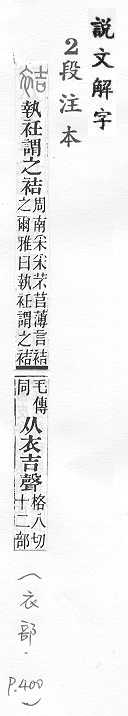 說文解字
2段注本
袺
執衽謂之袺
周南采采芣苢薄言袺
之爾雅曰執衽謂之袺
毛傳
同
从衣吉聲
格八切
十二部
(衣部.
P.400)